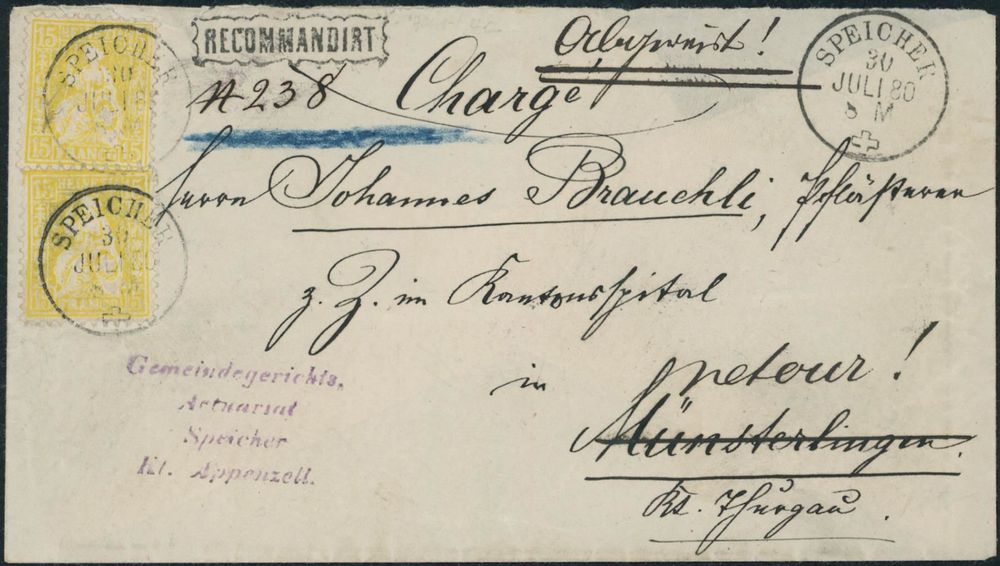 15 15
FRANCO
15 15
HELVETIA
15 15
FRANCO
SPEICHER
30
JULI 8
SPEICHER
30
JULI 80
RECOMMANDIRT
Abgereist!
SPEICHER
30
JULI 80
M
N 238 Chargé
Herrn Johannes Brauchli, Pflästerer
z. Z. im Kantonsspital
in retour!
Münsterlingen.
Kt. Thurgau.
Gemeindegerichts,
Actuariat
Speicher
Kt. Appenzell.